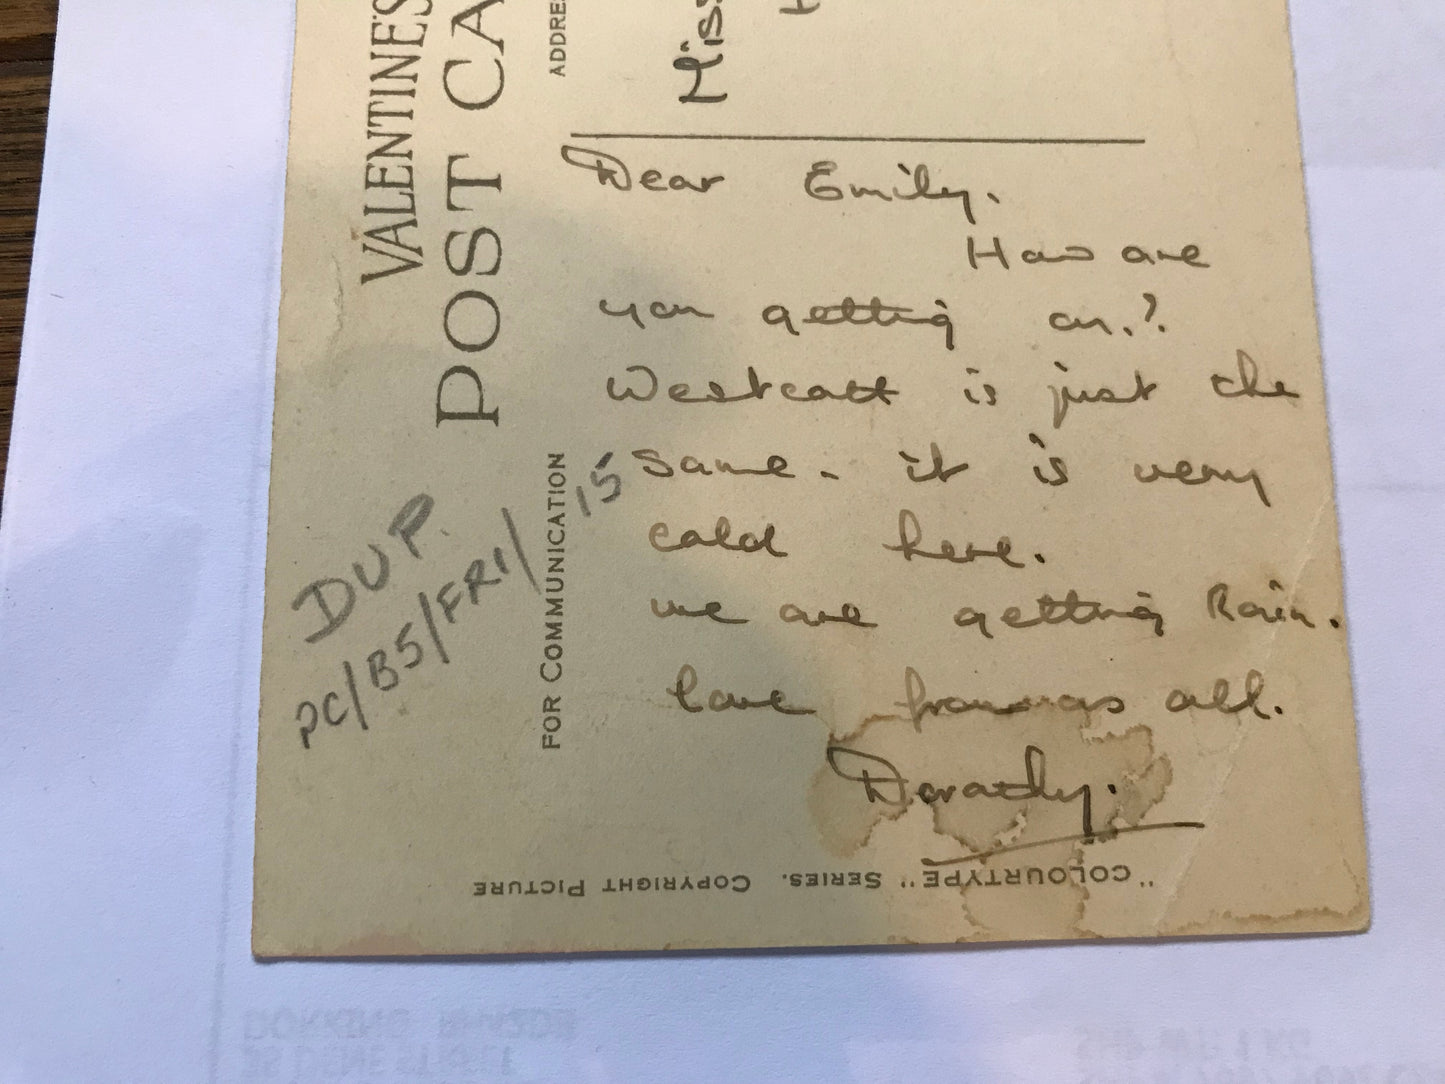 VALENTINE'S
POST CA
FOR COMMUNICATION
ADDRE
Miss
Dear Emily.
How are
you getting on.?
Westcott is just the
same. it is very
cold here.
we are getting Rain.
love from us all.
Dorothy.
DUP.
PC/BS/FRI/15
"COLOURTYPE" SERIES. COPYRIGHT PICTURE